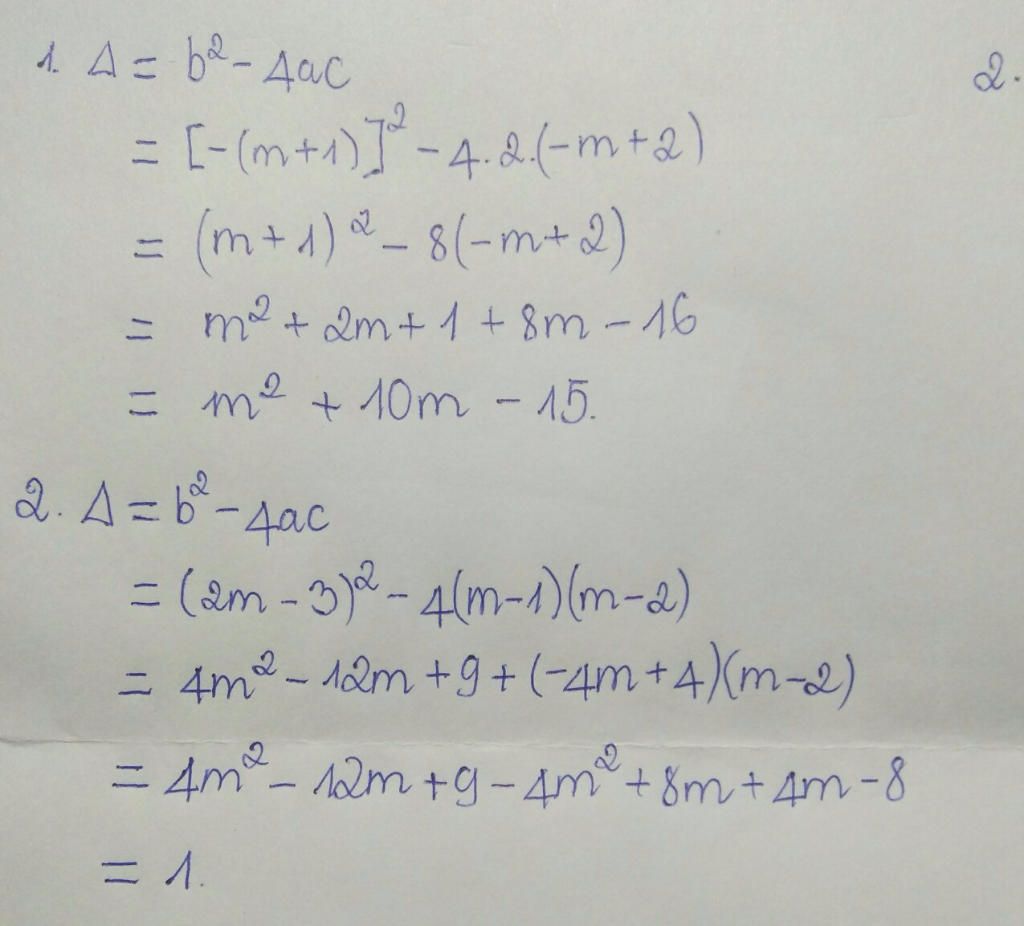 1. Δ = b² - 4ac
2.
= [-(m+1)]² - 4.2.(-m+2)
= (m+1)² - 8(-m+2)
= m² + 2m + 1 + 8m - 16
= m² + 10m - 15.
2. Δ = b² - 4ac
= (2m - 3)² - 4(m-1)(m-2)
= 4m² - 12m + 9 + (-4m + 4)(m-2)
= 4m² - 12m + 9 - 4m² + 8m + 4m - 8
= 1.